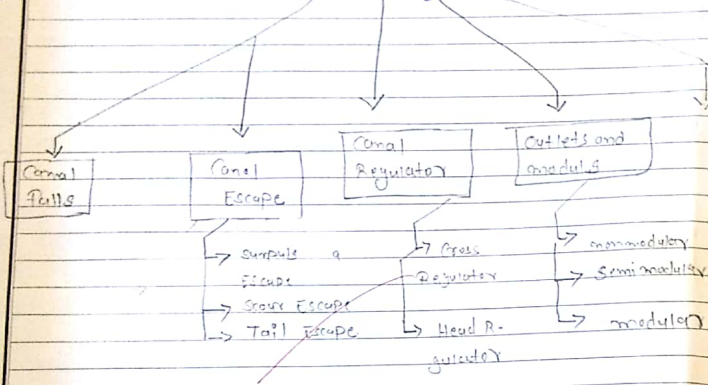 Canal
Falls
Canal
Escape
Canal
Regulator
Outlets and
moduls
surpuls a
Escape
Scour Escape
Tail Escape
Cross
Regulator
Head R-
gulator
nonmodular
Semi modular
modular